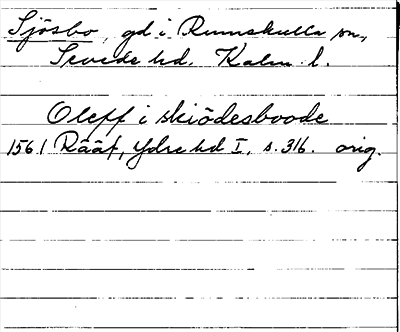 Sjösbo, gd i Rumskulla sn,
Sevede hd. Kalm. l.
Oleff i skiödesboode
1561 Rääf, Ydre hd I, s. 316. orig.